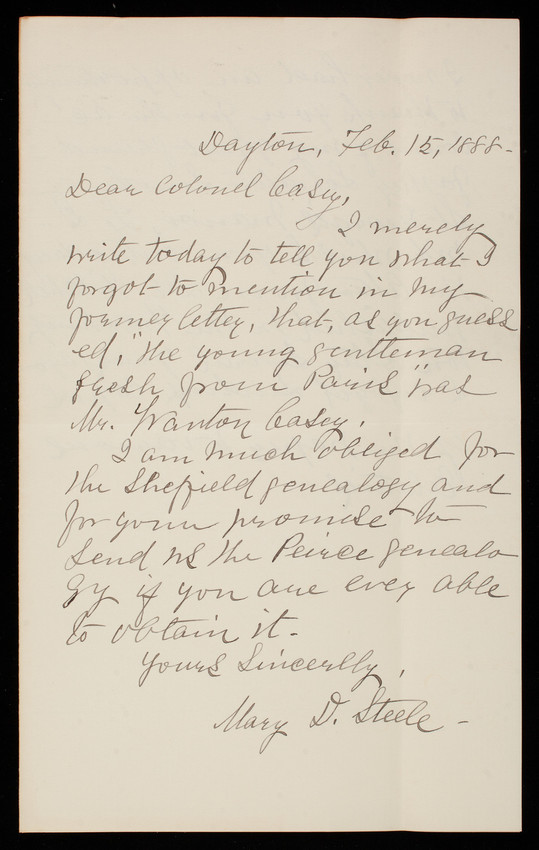 Dayton, Feb. 15, 1888-
Dear Colonel Casey,
I merely
write today to tell you what I
forgot to mention in my
former letter, that, as you guess
ed, "the young gentleman
fresh from Paris" was
Mr. Wanton Casey.
I am much obliged for
the Sheffield genealogy and
for your promise to
send us the Peirce genealo
gy if you are ever able
to obtain it-
Yours Sincerlly,
Mary D. Steele-